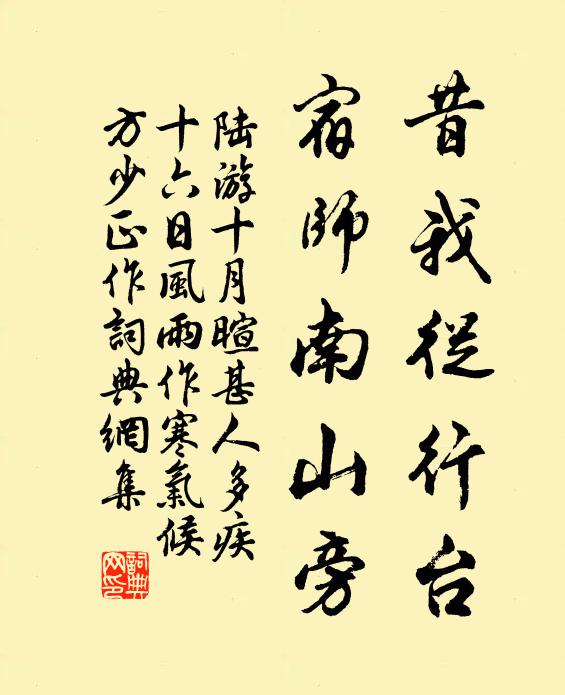 昔我從行台
宿師南山旁
陸游十月暄甚人多疾
十六日風雨作寒氣候
方少正作詞典網集
詞典网印